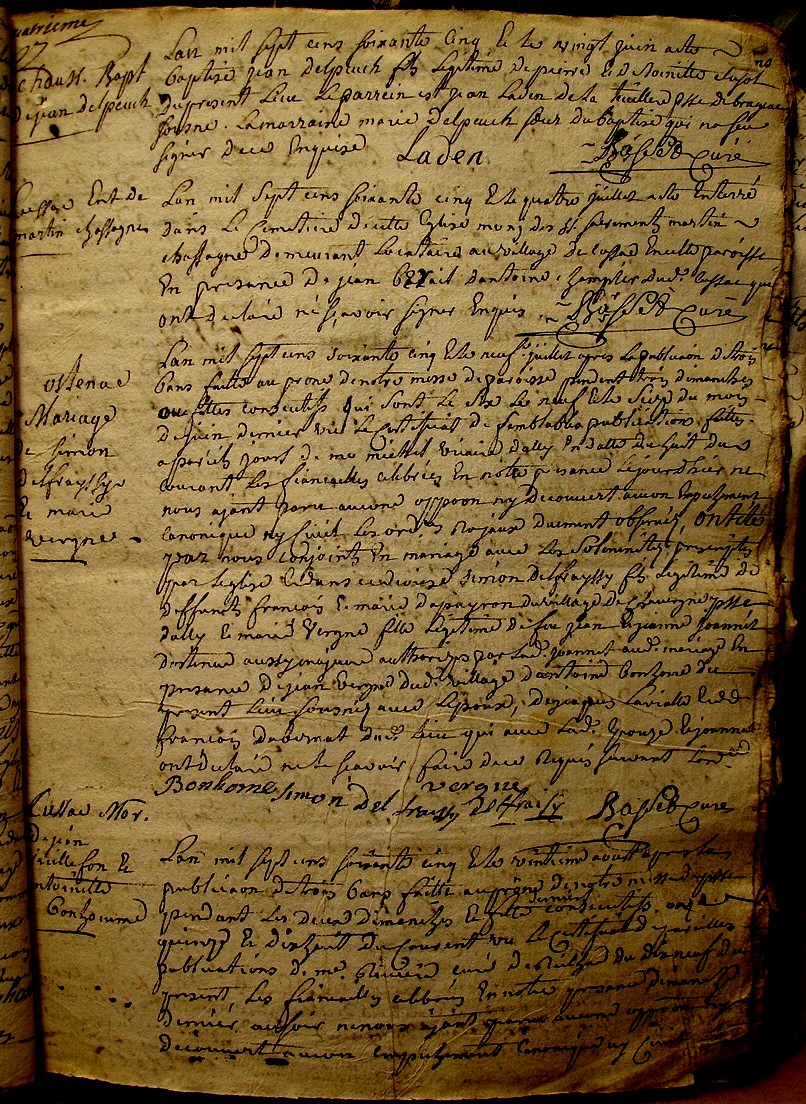 quatrieme
Bapt
de jean delpeuch
Lan mil sept cens soixante cinq et le vingt juin a ete
baptise jean delpeuch fils legitime de pierre et de toinette
du present lieu le parrein est jean Laden de la
La marraine marie delpeuch sœur du baptise qui na sceu
signer de ce enquise Laden. Basset curé
Ent. de
martin chassagne
Lan mil sept cens soixante cinq et le quatre juillet a ete enterré
dans le cemetiere de cette eglise muny des sts. sacrements martin
chassagne demeurant locataire au village de cessac en cette paroisse
En presance de jean dantoine dud. cessac qui
ont declaré ne sçavoir signer enquis Basset curé
ostenac
Mariage
de simon
delfrayssy
et marie
vergne
Lan mil sept cens soixante cinq et le neuf juillet apres la publicaon de trois
bans faitte au prone de notre messe de paroisse pendent trois dimanches
ou festes consecutifs qui sont le six le neuf et le seize du mois
de juin dernier vu le certificat de semblable publication faitte
a pareils jours de me vicaire dally en datte du huit du
courant les fiancailles celebrées en notre presance le jourdhier ne
nous ajant paru aucune oppoon ny decouvert aucun empechement
canonique ny civil les ord. rojaux duement observés, ont eté
par nous conjoints en mariage avec les solemnités prescrites
par leglise simon delfrayssy fils legitime de
deffunts francois et marie dapeyron du village de psse
dally et marie vergne fille legitime de feu jean et jeanne joannet
dostenac aussy majeure authorisée par lad. joannet aud. mariage en
presance de jean vergne dud. village dantoine bonhome du
present lieu sousnés avec lepoux, de jaques Lavialle et de
francois dabernat dud. lieu qui avec lad. epouze et joannet
ont declaré ne le sçavoir faire de ce requis suivant lord.
Bonhome simon del fraissy vergne delfraisy Basset curé
Cussac Mar.
de jean
et
antoinette
bonhomme
Lan mil sept cens soixante cinq et le vintieme aoust apres la
publicaon de trois bans faitte au prone de notre messe de psse
pendant les deux dimanches et feste derniers consecutifs onze
quinze et dixhuit du courant vu le certificat de pareilles
publications de me. curé de du dixneuf du
present, les fiancailles celebrées en notre presance dimanche
dernier au soir ne nous ajant paru aucune oppoon ny
decouvert aucun empechement canonique ny civil